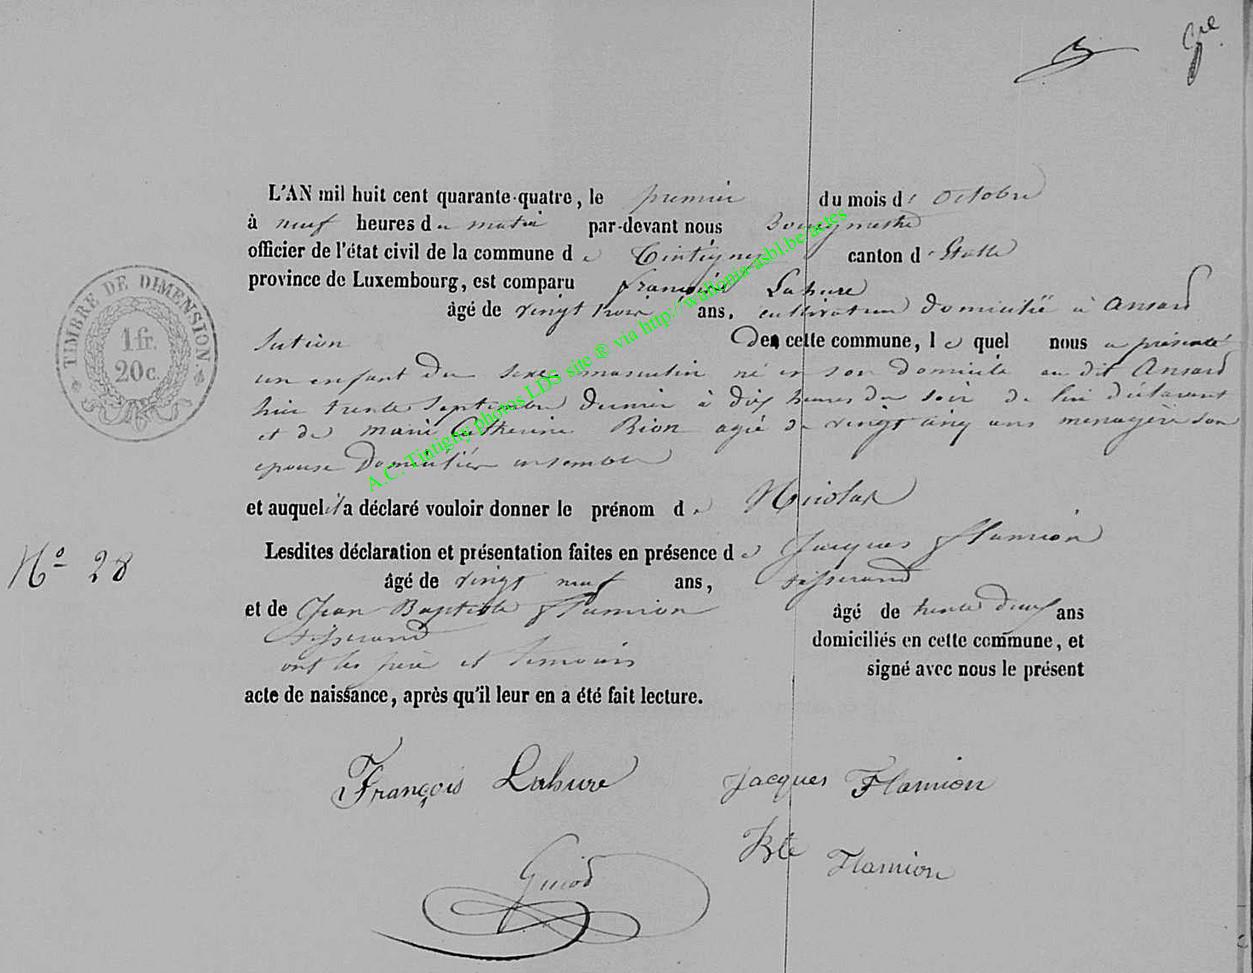 TIMBRE DE DIMENSION
1 fr.
20 c.
L'AN mil huit cent quarante-quatre, le premier du mois d' octobre
à neuf heures du matin par-devant nous Bourgmestre
officier de l'état civil de la commune de Tintigny canton d'Etalle
province de Luxembourg, est comparu François Lahure
âgé de vingt trois ans, cultivateur domicilié à Ansart
section De cette commune, le quel nous a présenté
un enfant du sexe masculin né en son domicile au dit Ansart
hier trente Septembre dernier à dix heures du soir de lui déclarant
et de Marie Catherine Bion agée de vingt cinq ans menagère son
epouse domiciliés ensemble
et auquel il a déclaré vouloir donner le prénom de Nicolas
Lesdites déclaration et présentation faites en présence de Jacques Flamion
âgé de vingt neuf ans, tisserand
et de Jean Baptiste Flamion âgé de trente deux ans
tisserand domiciliés en cette commune, et
ont les père et temoins signé avec nous le présent
acte de naissance, après qu'il leur en a été fait lecture.
N° 28
François Lahure Jacques Flamion
Bte Flamion
A.C. Tintigny photos LDS site ® via http://wallonia-asbl.be/actes